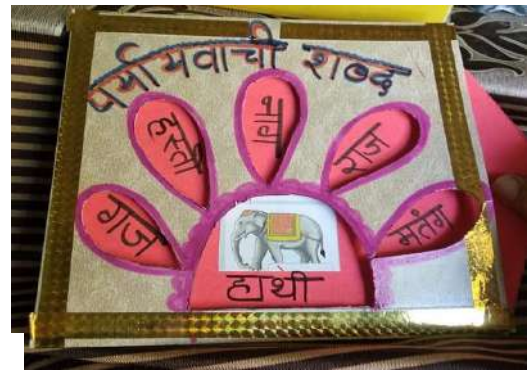 पर्यायवाची शब्द
गज
हस्ती
नाग
राज
मतंग
हाथी